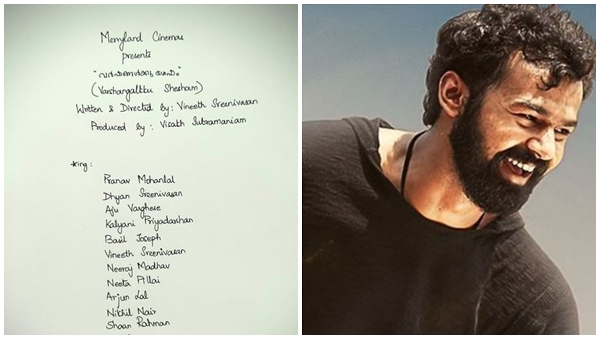 Merryland Cinemas
presents
"വർഷങ്ങൾക്കു ശേഷം"
(Varshangalkku Shesham)
Written & Directed by: Vineeth Sreenivasan
Produced by: Visakh Subramaniam
★ing:
Pranav Mohanlal
Dhyan Sreenivasan
Aju Varghese
Kalyani Priyadarshan
Basil Joseph
Vineeth Sreenivasan
Neeraj Madhav
Neeta Pillai
Arjun Lal
Nikhil Nair
Shaan Rahman